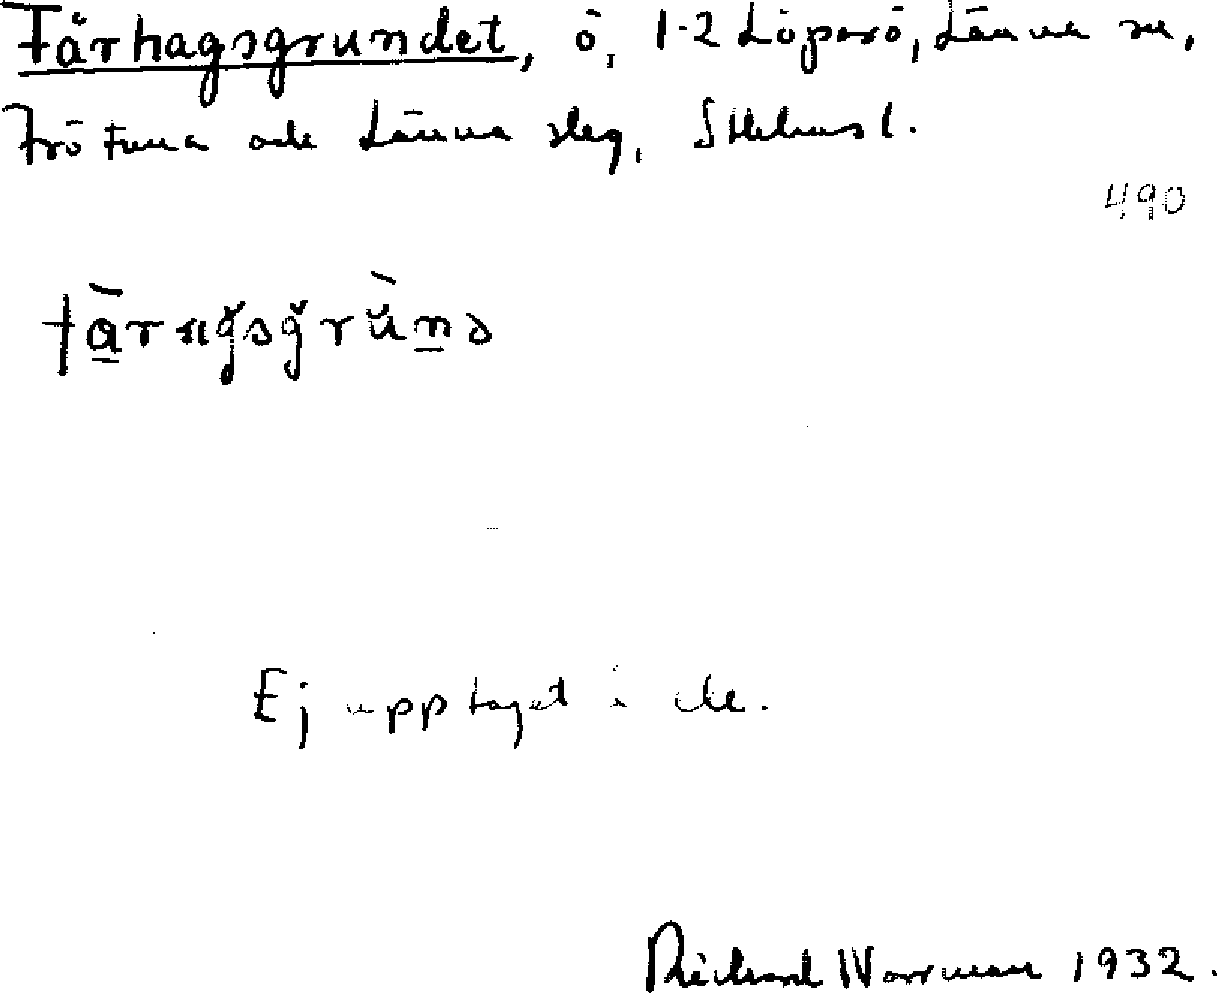 Fårhagsgrundet, ö, 1-2 Löparö, Länna sn,
Frötuna och Länna slg, Sthlms l.
490
fàragsgrùnd
Ej upptaget i de.
Richard Norrman 1932.